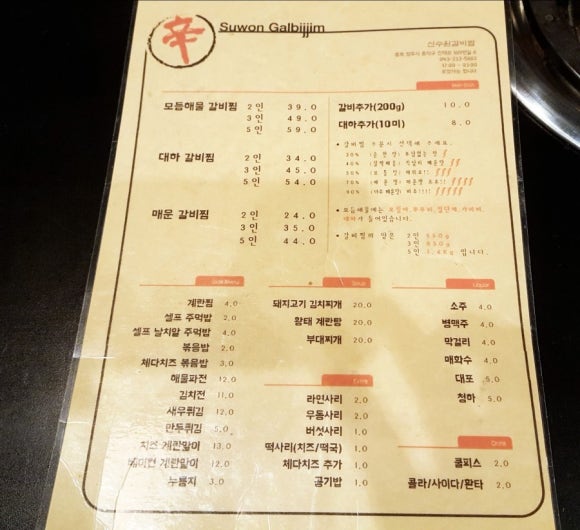 辛
Suwon Galbijjim
신수원갈비찜
043-213-5882
모듬해물 갈비찜 2인 39.0
3인 49.0
5인 59.0
대하 갈비찜 2인 34.0
3인 45.0
5인 54.0
매운 갈비찜 2인 24.0
3인 35.0
5인 44.0
갈비추가(200g) 10.0
대하추가(10미) 8.0
• 갈비찜 주문시 선택해 주세요.
30%
40%
50%
70%
90%
대하가 들어있습니다.
• 갈비찜의 양은 2인 550g
3인 850g
5인 1.4Kg 입니다.
Side Menu
계란찜 4.0
셀프 주먹밥 2.0
셀프 날치알 주먹밥 4.0
볶음밥 2.0
체다치즈 볶음밥 3.0
해물파전 12.0
김치전 11.0
새우튀김 12.0
만두튀김 5.0
치즈 계란말이 13.0
베이컨 계란말이 12.0
누룽지 3.0
Soup
돼지고기 김치찌개 20.0
황태 계란탕 20.0
부대찌개 20.0
Extra
라면사리 2.0
우동사리 2.0
버섯사리 1.0
떡사리(치즈/떡국) 1.0
체다치즈 추가 1.0
공기밥 1.0
Liquor
소주 4.0
병맥주 4.0
막걸리 4.0
매화수 4.0
대포 5.0
청하 5.0
Drink
쿨피스 2.0
콜라/사이다/환타 2.0